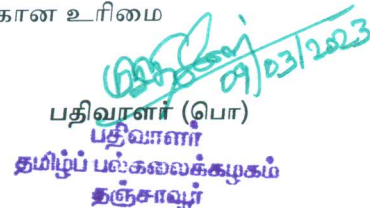 கான உரிமை
09/03/2023
பதிவாளர் (பொ)
பதிவாளர்
தமிழ்ப் பல்கலைக்கழகம்
தஞ்சாவூர்